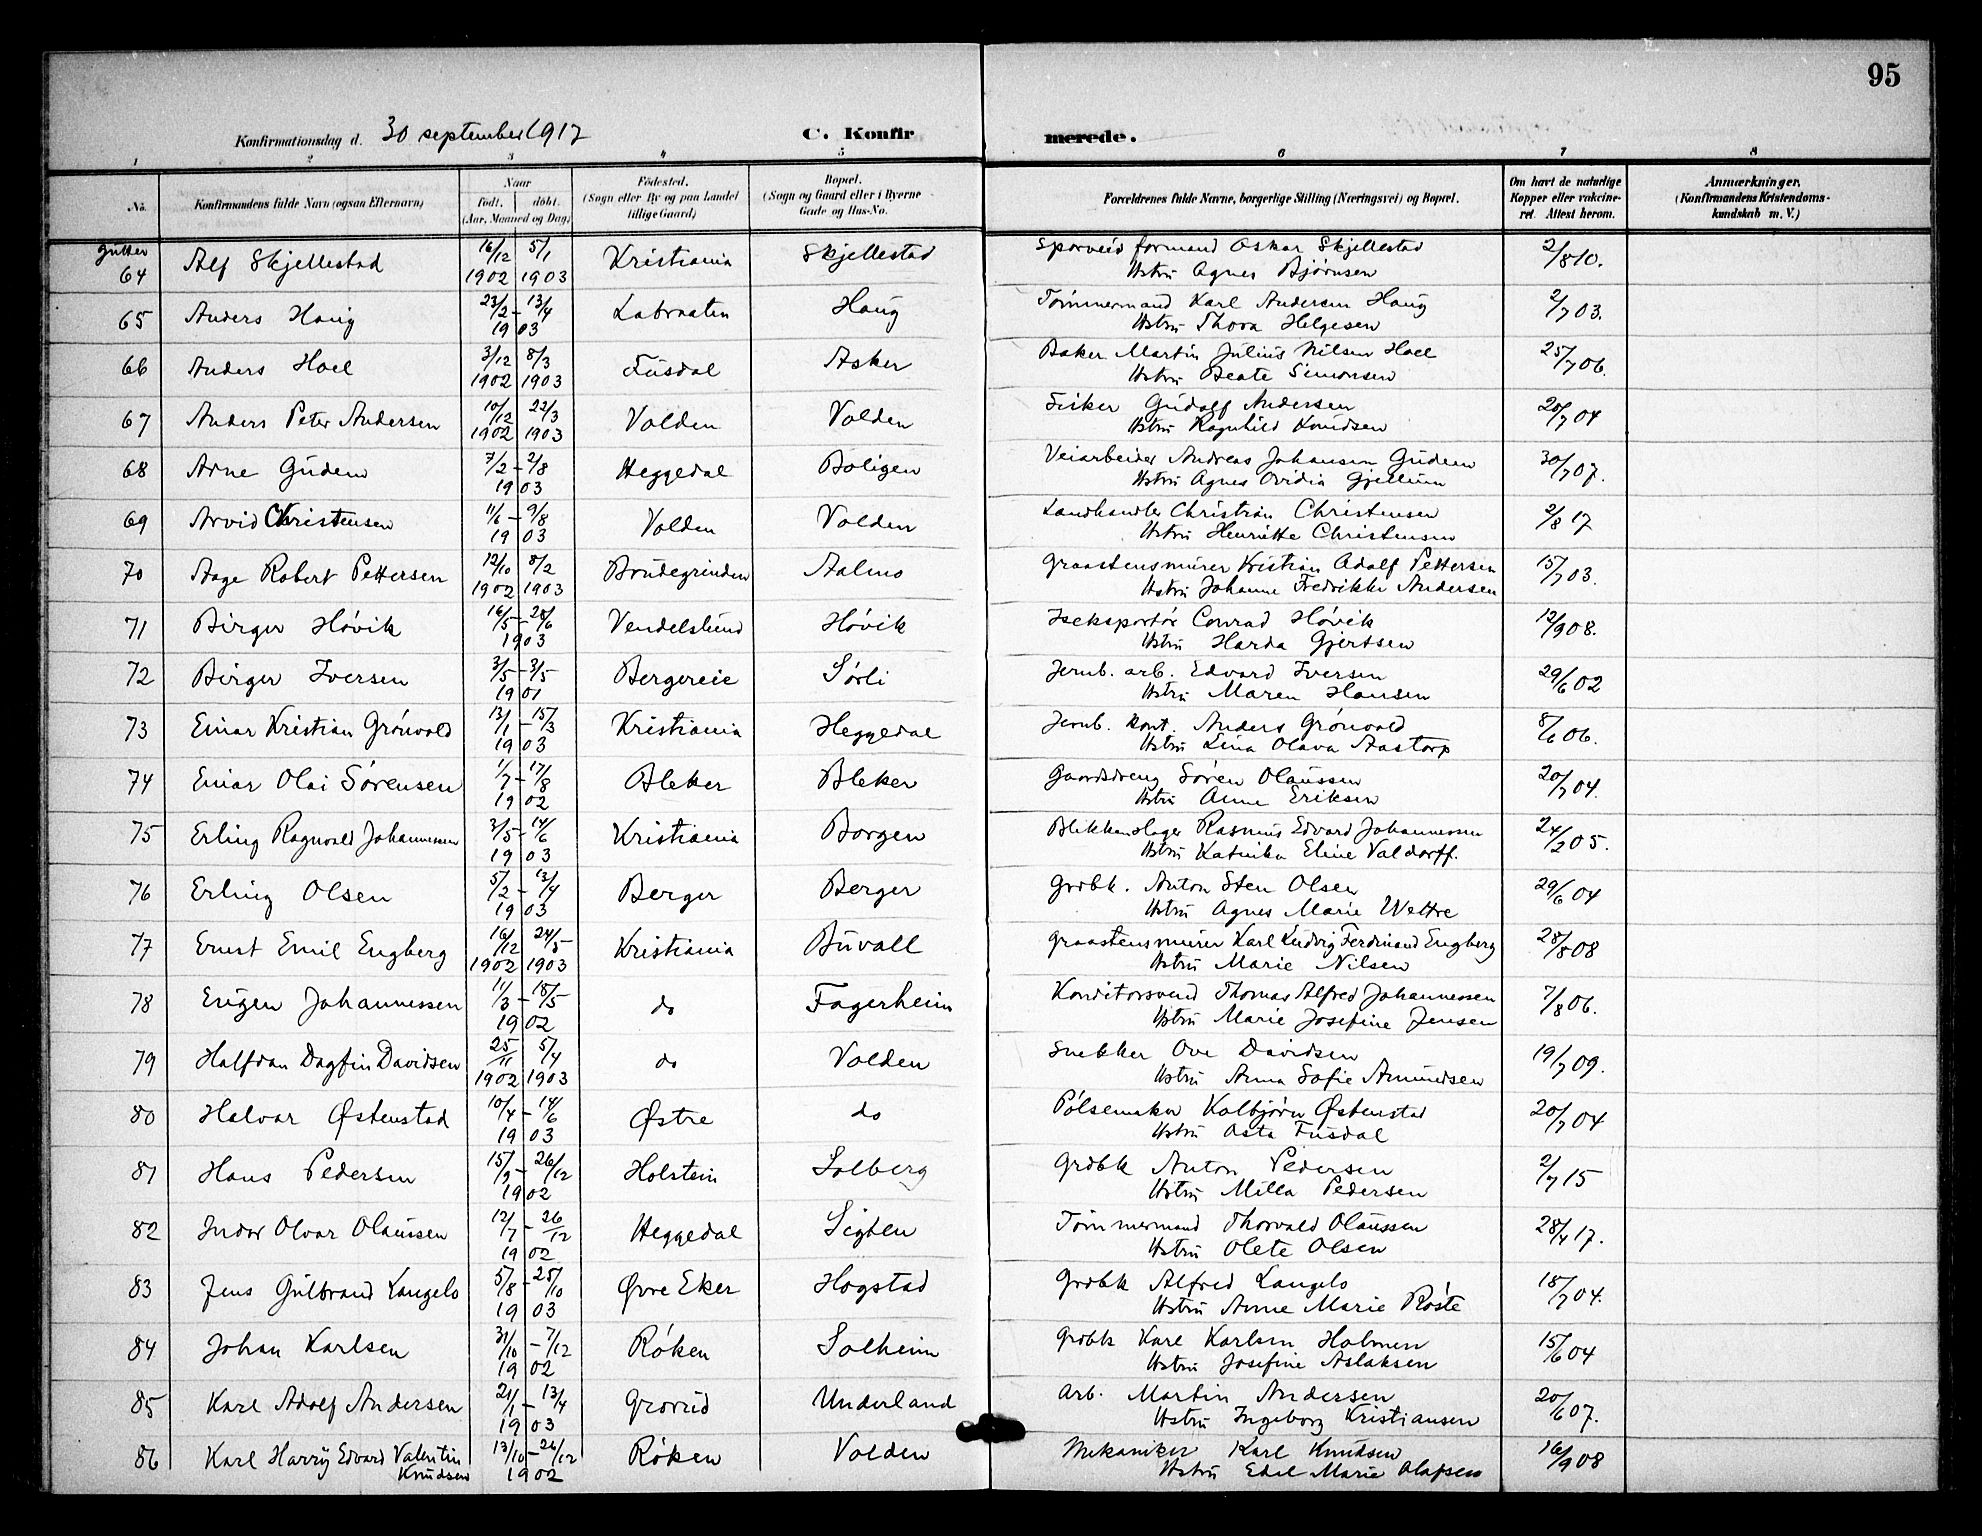 95
Konfirmationsdag d. 30 september 1917 C. Konfirmerede.
1 2 3 4 5 6 7 8
No. Konfirmandens fulde Navn (ogsaa Efternavn) Naar født. døbt. (Aar, Maaned og Dag) Fødested. (Sogn eller By og paa Landet tillige Gaard) Bopæl. (Sogn og Gaard eller i Byerne Gade og Hus-No. Forældrenes fulde Navne, borgerlige Stilling (Næringsvei) og Bopæl. Om havt de naturlige Kopper eller vakcineret. Attest herom. Anmærkninger. (Konfirmandens Kristendomskundskab m. V.)
Gutter
64 Alf Skjellestad 16/12 1902 5/1 1903 Kristiania Skjellestad Sporveis formand Oskar Skjellestad 2/8 10.
Hstru Agnes Bjørnsen
65 Anders Haug 23/2 - 13/4 1903 Labraaten Haug Tømmermand Karl Andersen Haug 2/7 03.
Hstru Thora Helgesen
66 Anders Hoel 3/12 1902 8/3 1903 Fusdal Asker Baker Martin Julius Nilsen Hoel 25/7 06.
Hstru Beate Simonsen
67 Anders Peter Andersen 10/12 1902 22/3 1903 Volden Volden Fisker Gudolf Andersen 20/7 04
Hstru Ragnhild Knudsen
68 Arne Gudem 7/2 - 2/8 1903 Heggedal Boligen Veiarbeider Andreas Johansen Gudem 30/7 07.
Hstru Agnes Ovidia Gjellum
69 Arvid Christensen 11/6 - 9/8 1903 Volden Volden Landhandler Christian Christensen 2/8 17
Hstru Henriette Christensen
70 Aage Robert Pettersen 12/10 1902 8/2 1903 Brudegrinden Aalmo Graastensmurer Kristian Adolf Pettersen 15/7 03.
Hstru Johanne Fredrikke Andersen
71 Birger Høvik 16/5 - 28/6 1903 Vendelslund Høvik Iseksportør Conrad Høvik 12/9 08.
Hstru Harda Gjertsen
72 Birger Iversen 3/5 - 3/5 1901 Bergereie Sørli Jernb. arb. Edvard Iversen 29/6 02
Hstru Maren Hansen
73 Einar Kristian Grønvold 13/1 - 15/3 1903 Kristiania Heggedal Jernb. kont. Anders Grønvold 8/6 06.
Hstru Lina Olava Aastorp
74 Einar Olai Sørensen 1/7 - 17/8 1902 Bleker Bleker Gaardsdreng Søren Olaussen 20/7 04.
Hstru Anne Eriksen
75 Erling Ragnvald Johannessen 3/5 - 14/6 1903 Kristiania Borgen Blikkenslager Rasmus Edvard Johannessen 24/2 05.
Hstru Katinka Eline Valdorff.
76 Erling Olsen 5/2 - 13/4 1903 Berger Berger Grdbk. Anton Sten Olsen 29/6 04
Hstru Agnes Marie Wettre
77 Ernst Emil Engberg 16/12 1902 24/5 1903 Kristiania Buvall Graastensmurer Karl Ludvig Ferdinand Engberg 28/8 08
Hstru Marie Nilsen
78 Eugen Johannessen 11/3 - 18/5 1902 do Fagerheim Konditorsvend Thomas Alfred Johannessen 7/8 06.
Hstru Marie Josefine Jensen
79 Halfdan Dagfin Davidsen 25/11 1902 5/4 1903 do Volden Snekker Ove Davidsen 19/7 09.
Hstru Anna Sofie Amundsen
80 Halvar Østenstad 10/4 - 14/6 1903 Østre do Pølsemaker Kolbjørn Østenstad 20/7 04
Hstru Asta Fusdal
81 Hans Pedersen 15/9 - 26/12 1902 Holstein Solberg Grdbk Anton Pedersen 2/7 15
Hstru Milla Pedersen
82 Indar Olvar Olaussen 12/7 - 26/12 1902 Heggedal Sigten Tømmermand Thorvald Olaussen 28/4 17.
Hstru Olete Olsen
83 Jens Gulbrand Langelo 5/8 - 25/10 1903 Øvre Eker Hogstad Grdbk Alfred Langelo 18/7 04.
Hstru Anne Marie Røste
84 Johan Karlsen 31/10 - 7/12 1902 Røken Solheim Grdbk Karl Karlsen Holmen 15/6 04
Hstru Josefine Aslaksen
85 Karl Adolf Andersen 21/1 - 13/4 1903 Grorud Underland Arb. Martin Andersen 20/6 07.
Hstru Ingeborg Kristiansen
86 Karl Harry Edvard Valentin Knudsen 13/10 - 26/12 1902 Røken Volden Mekaniker Karl Knudsen 16/9 08
Hstru Edel Marie Olafsen